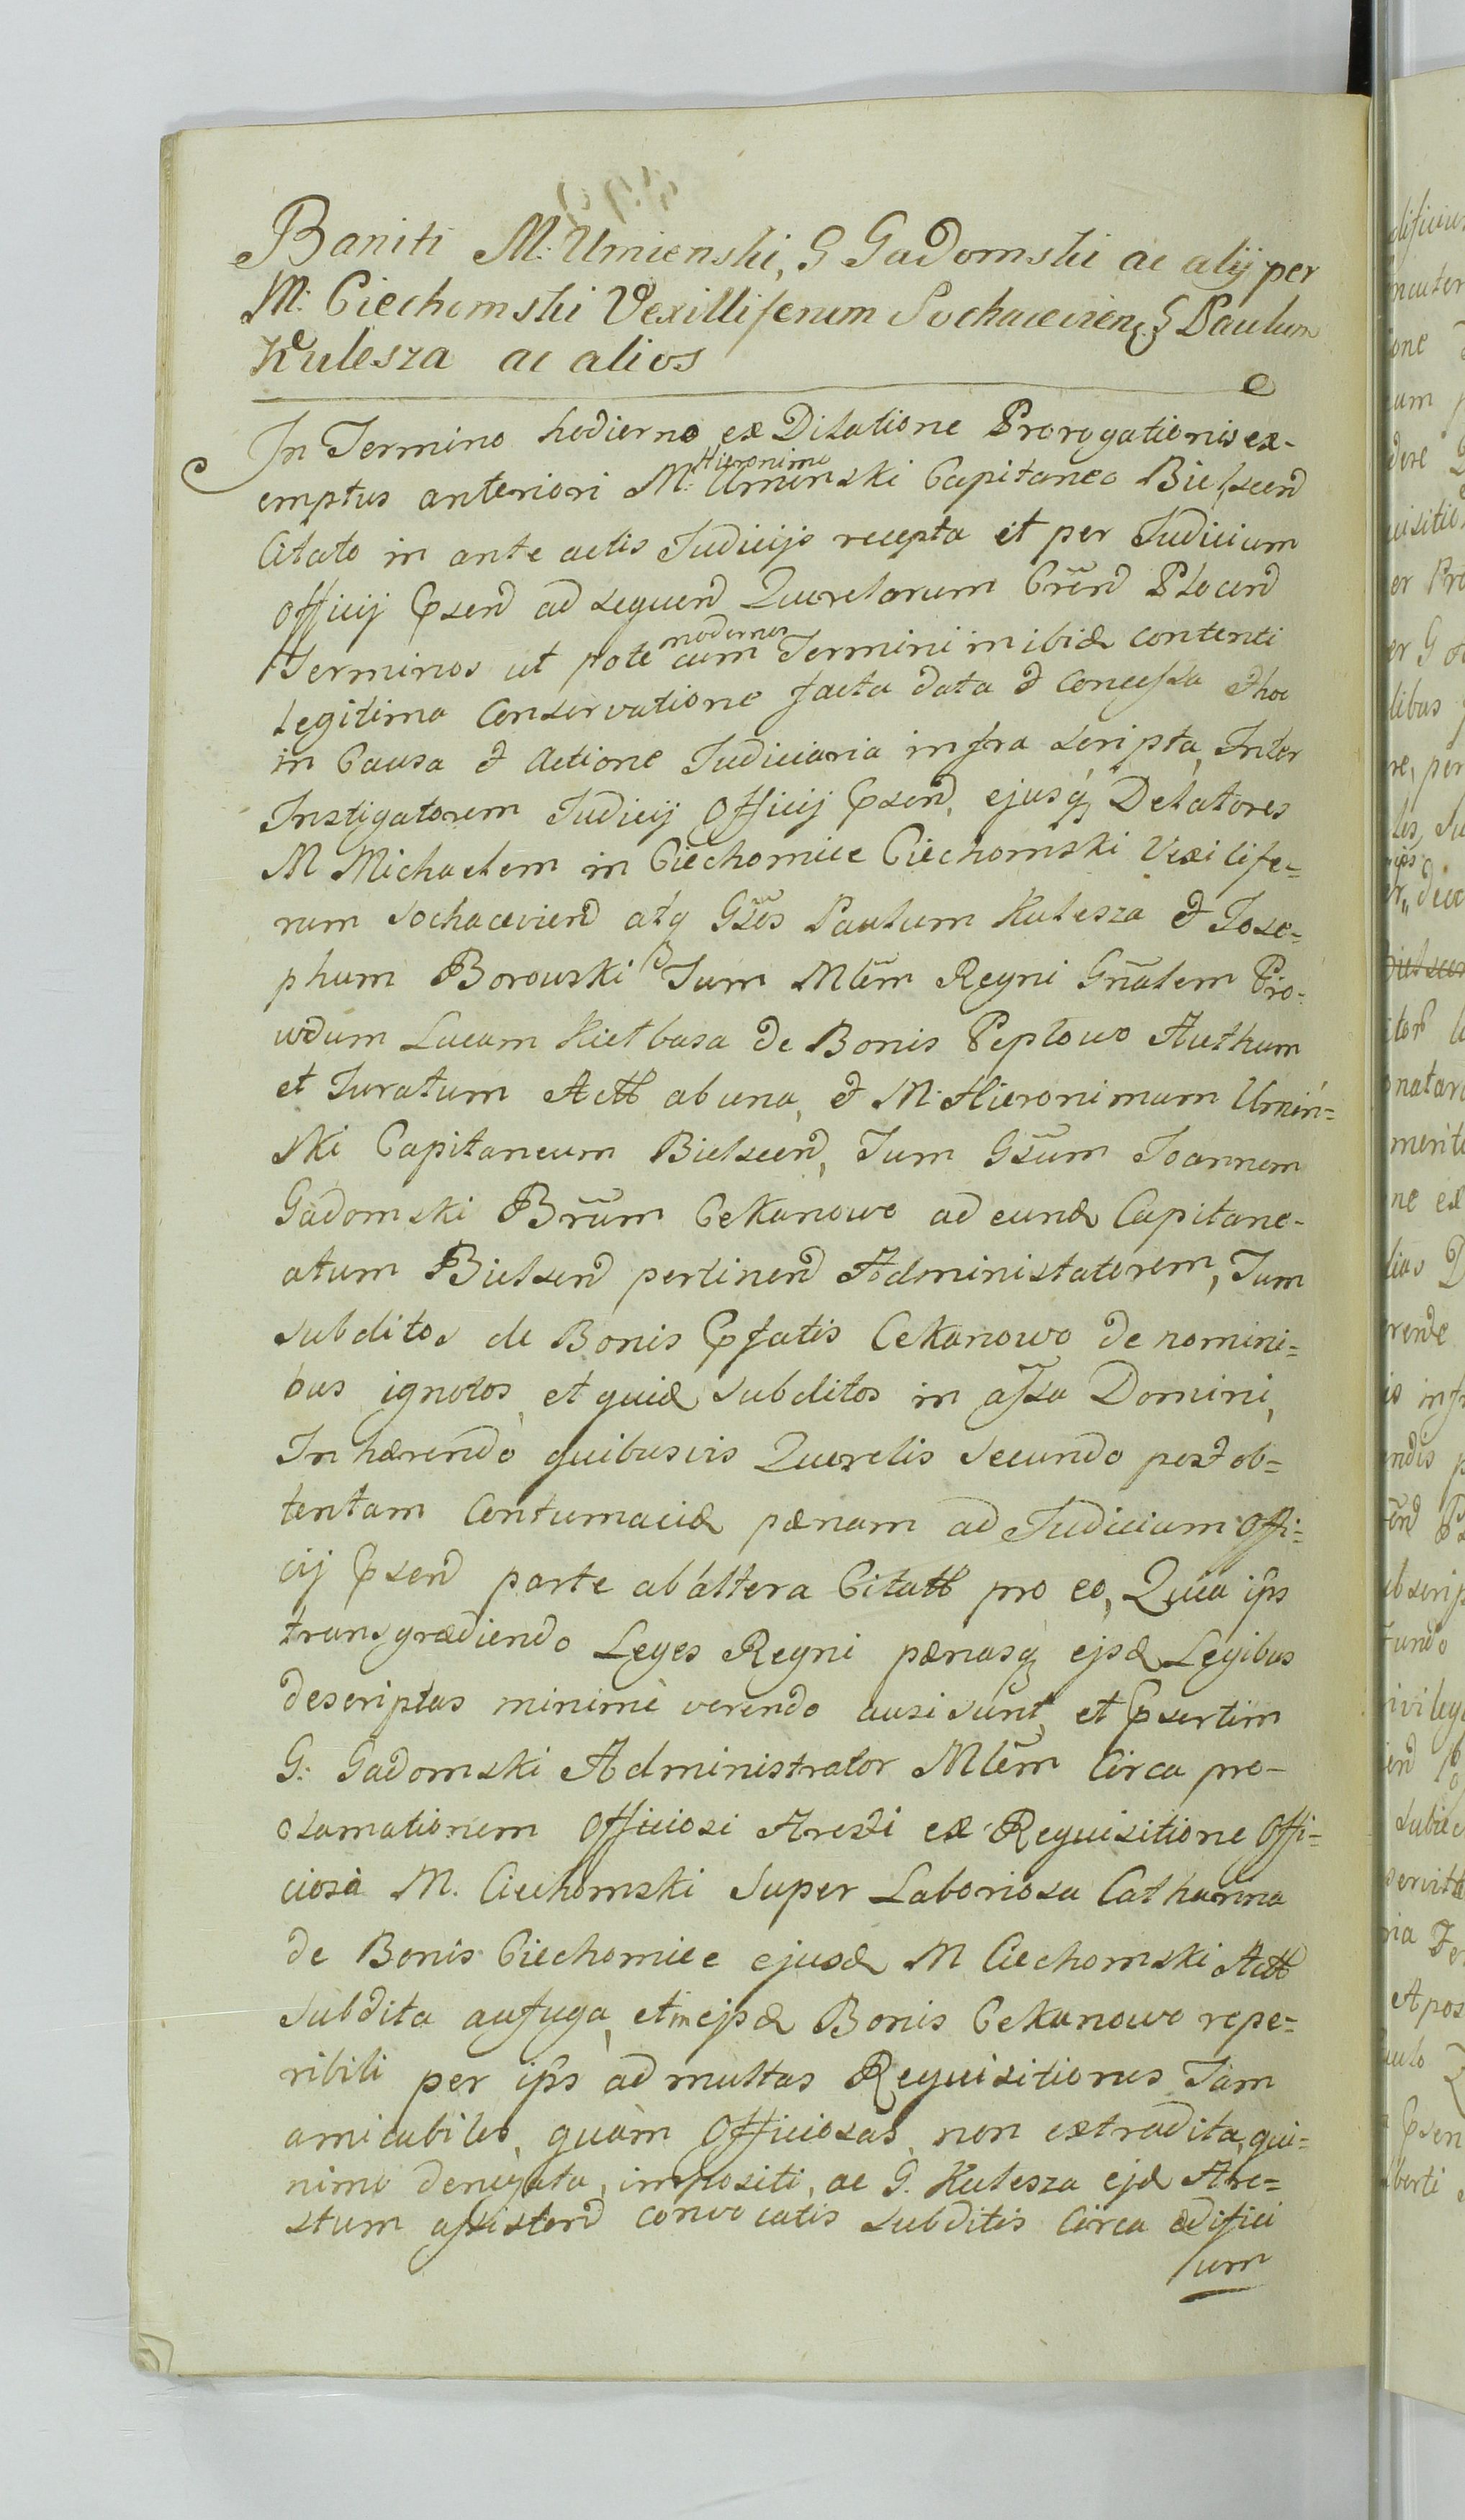 Baniti M: Umienski, G Gadomski ac alij per
M: Ciechomski Vexilliferum Sochacevien, G Paulum
Kulesza ac alios
In Termino hodierno ex Dilatione Prorogationis ex-
emptus anteriori M: Hieronimo Uminski Capitaneo Bielscen
Citato in ante actis Judicijs recepta et per Judicium
Officij Psen ad sequen Querelarum Cren Plocen
Terminos ut pote cum moderner Termini in ibid contenti
Legitima Conservatione facta data & Concessa & hoc
in Causa & Actione Judiciaria infra scripta, Inter
Instigatorem Judicij Officij Psen, ejusq Delatores
M Michaelem in Ciechomice Ciechomski Vexilife=
rum Sochacevien atq Gsos Paulum Kulesza & Jose=
phum Borowski Tum Mlem Regni Gnalem Pro=
vdum Lucam Kietbasa de Bonis Peplowo Authum
et Juratum Actt ab una, & M: Hieronimum Umin=
ski Capitaneum Bielscen, Tum Gsum Joannem
Gadomski Brum Cekanowo ad eund Capitane-
atum Bielsen pertinen Administatorem, Tum
subditos de Bonis Pfatis Cekanowo de nomini=
bus ignotos, et quid subditos in assa Domini,
In hærendo quibusvis Querelis Secundo post ob=
tentam Contumaciæ pænam ad Judicium Offi=
cij Psen parte ab altera Citatt pro eo, Quia ips
transgrædiendo Leges Regni pænasq ejsd Legibus
descriptas minimè verendo ausi sunt, et Psertim
G: Gadomski Administrator Mlem Circa pro-
clamationem Officiosi Aresti ex Requisitione Offi=
ciosà M. Ciechomski Super Laboriosa Catharina
de Bonis Ciechomice ejusd M Ciechomski Actt
Subdita aufuga, et in ejsd Bonis Cekanowo repe=
ribili per ips ad multas Requisitiones Tam
amicabiles, quàm Officiosas, non extradita, qui=
nimo denegata, impositi, ac G. Kulesza ejd Are=
stum assisten convocatis subditis Circa ædifici
um